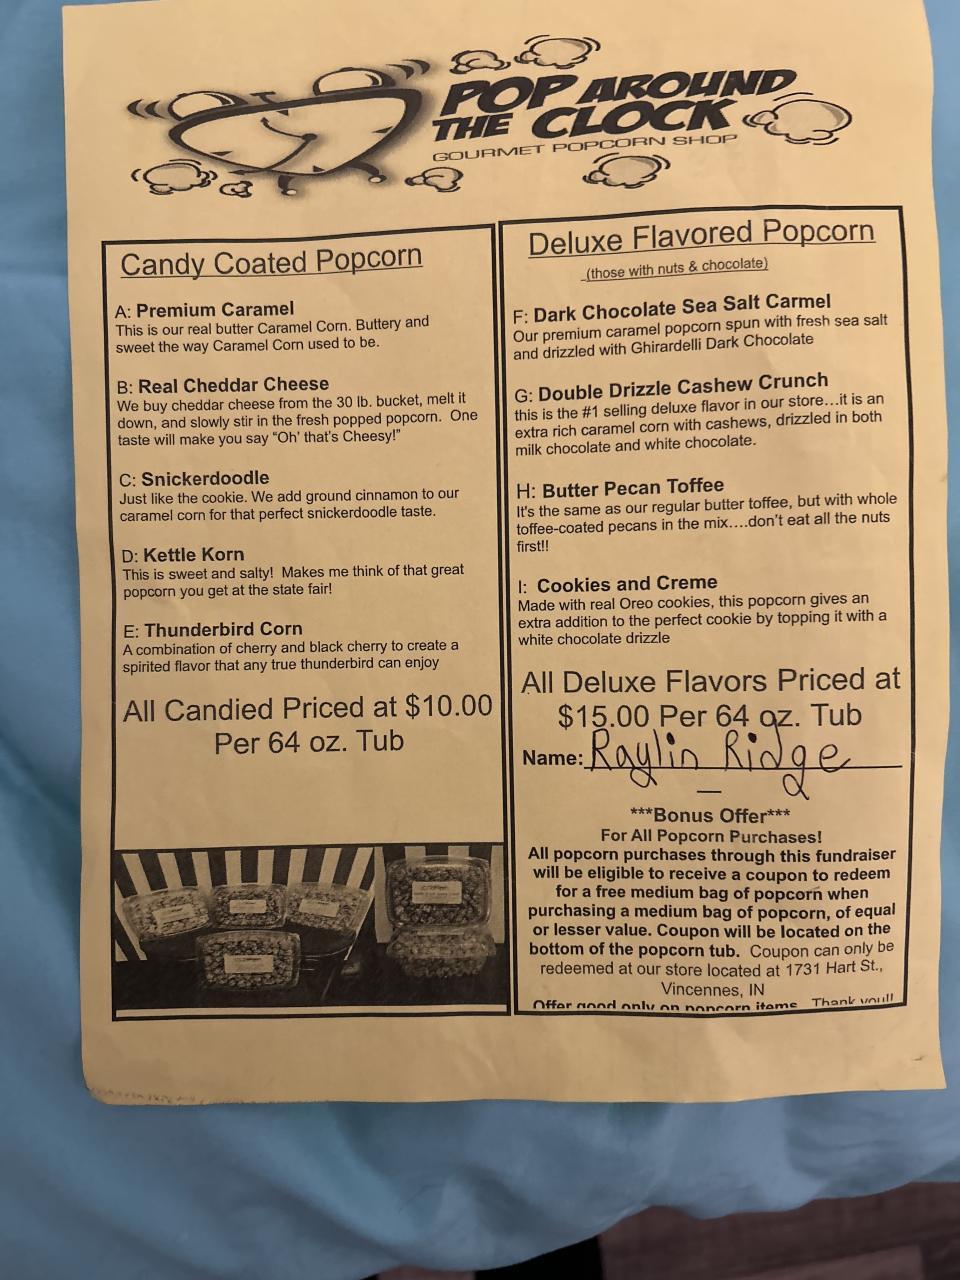 POP AROUND
THE CLOCK
GOURMET POPCORN SHOP
Candy Coated Popcorn
A: Premium Caramel
This is our real butter Caramel Corn. Buttery and
sweet the way Caramel Corn used to be.
B: Real Cheddar Cheese
We buy cheddar cheese from the 30 lb. bucket, melt it
down, and slowly stir in the fresh popped popcorn. One
taste will make you say “Oh’ that’s Cheesy!”
C: Snickerdoodle
Just like the cookie. We add ground cinnamon to our
caramel corn for that perfect snickerdoodle taste.
D: Kettle Korn
This is sweet and salty! Makes me think of that great
popcorn you get at the state fair!
E: Thunderbird Corn
A combination of cherry and black cherry to create a
spirited flavor that any true thunderbird can enjoy
All Candied Priced at $10.00
Per 64 oz. Tub
Deluxe Flavored Popcorn
(those with nuts & chocolate)
F: Dark Chocolate Sea Salt Carmel
Our premium caramel popcorn spun with fresh sea salt
and drizzled with Ghirardelli Dark Chocolate
G: Double Drizzle Cashew Crunch
this is the #1 selling deluxe flavor in our store…it is an
extra rich caramel corn with cashews, drizzled in both
milk chocolate and white chocolate.
H: Butter Pecan Toffee
It's the same as our regular butter toffee, but with whole
toffee-coated pecans in the mix….don’t eat all the nuts
first!!
I: Cookies and Creme
Made with real Oreo cookies, this popcorn gives an
extra addition to the perfect cookie by topping it with a
white chocolate drizzle
All Deluxe Flavors Priced at
$15.00 Per 64 oz. Tub
Name: Raylin Ridge
***Bonus Offer***
For All Popcorn Purchases!
All popcorn purchases through this fundraiser
will be eligible to receive a coupon to redeem
for a free medium bag of popcorn when
purchasing a medium bag of popcorn, of equal
or lesser value. Coupon will be located on the
bottom of the popcorn tub. Coupon can only be
redeemed at our store located at 1731 Hart St.,
Vincennes, IN
Offer good only on popcorn items Thank you!!